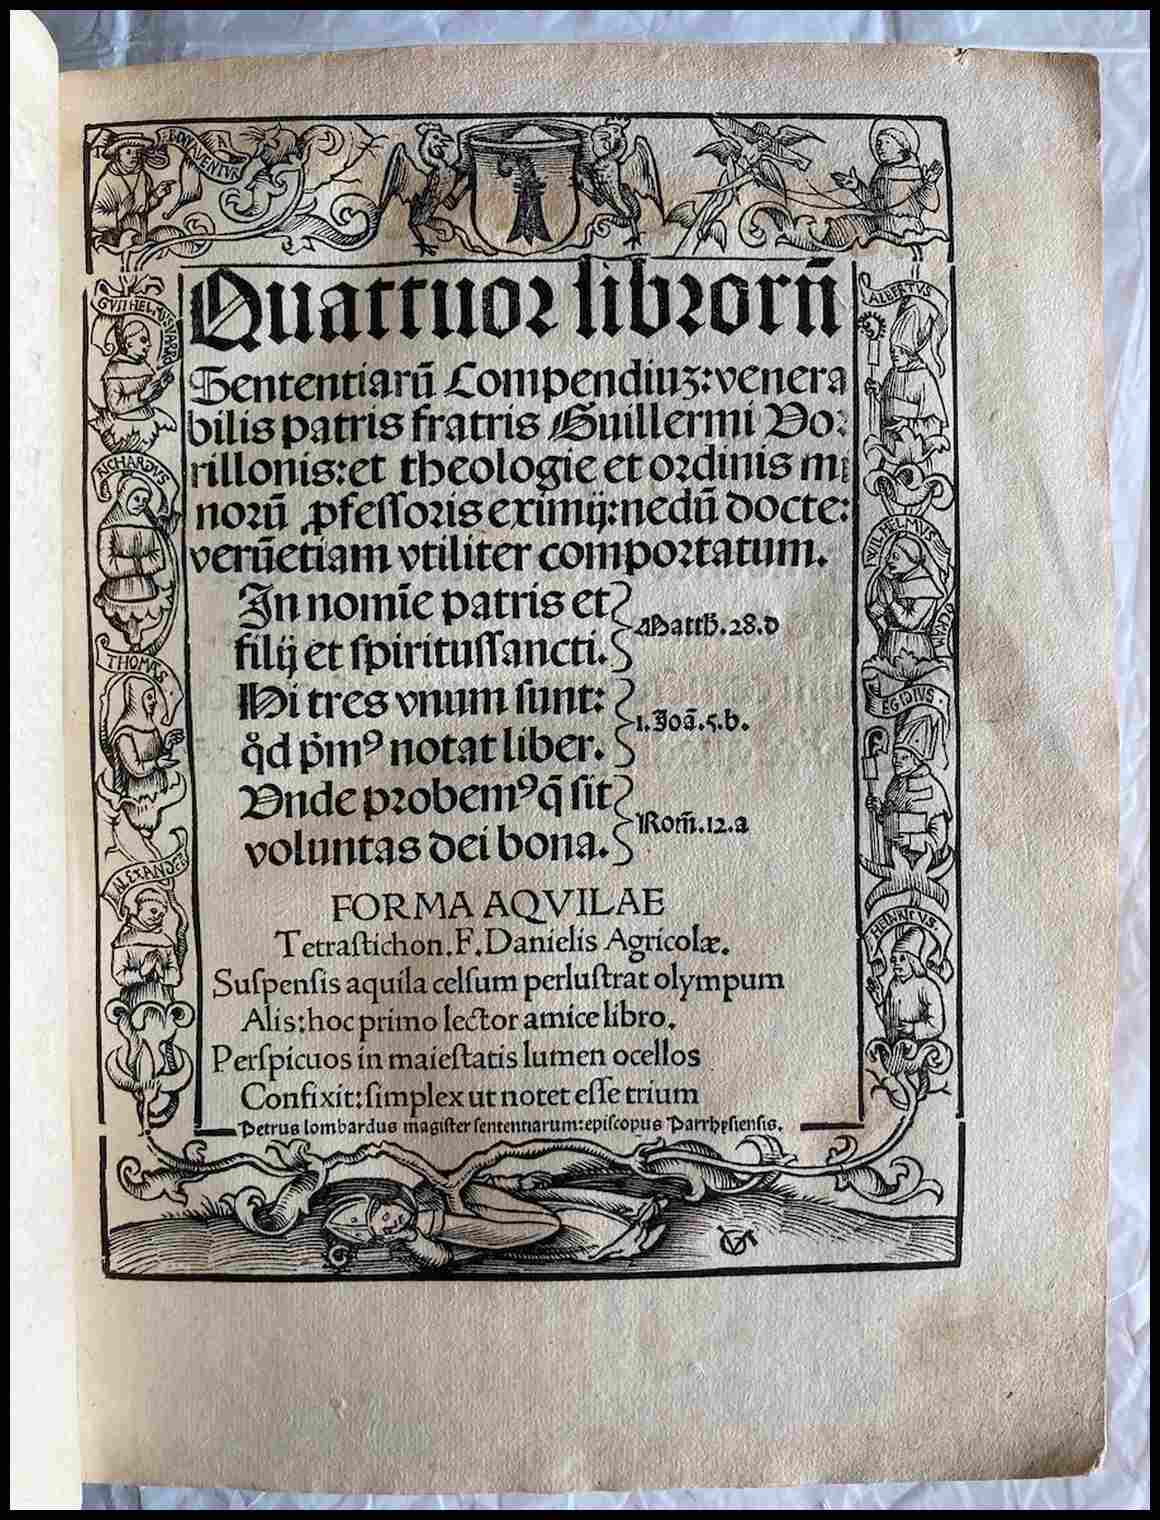 BONAVENTVRA
GVILHELMVS VARRO
RICHARDVS
THOMAS
ALEXANDER
ALBERTVS
WILHELMVS OCCAM
EGIDIVS
HEINRICVS
Quattuor librorū
Sententiarū Compendiuʒ: venera
bilis patris fratris Guillermi Vor
rillonis: et theologie et ordinis mi
norū ꝓfessoris eximij: nedū docte:
verūetiam vtiliter comportatum.
In nomīe patris et
filij et spiritussancti.
Matth. 28. d
Hi tres vnum sunt:
qd̊ pm̄ꝰ notat liber.
1. Joā. 5. b.
Vnde probemꝰ q̄ sit
voluntas dei bona.
Rom̄. 12. a
FORMA AQVILAE
Tetrastichon. F. Danielis Agricolæ.
Suspensis aquila celsum perlustrat olympum
Alis: hoc primo lector amice libro.
Perspicuos in maiestatis lumen ocellos
Confixit: simplex ut notet esse trium
Petrus lombardus magister sententiarum: episcopus Parrhysiensis.